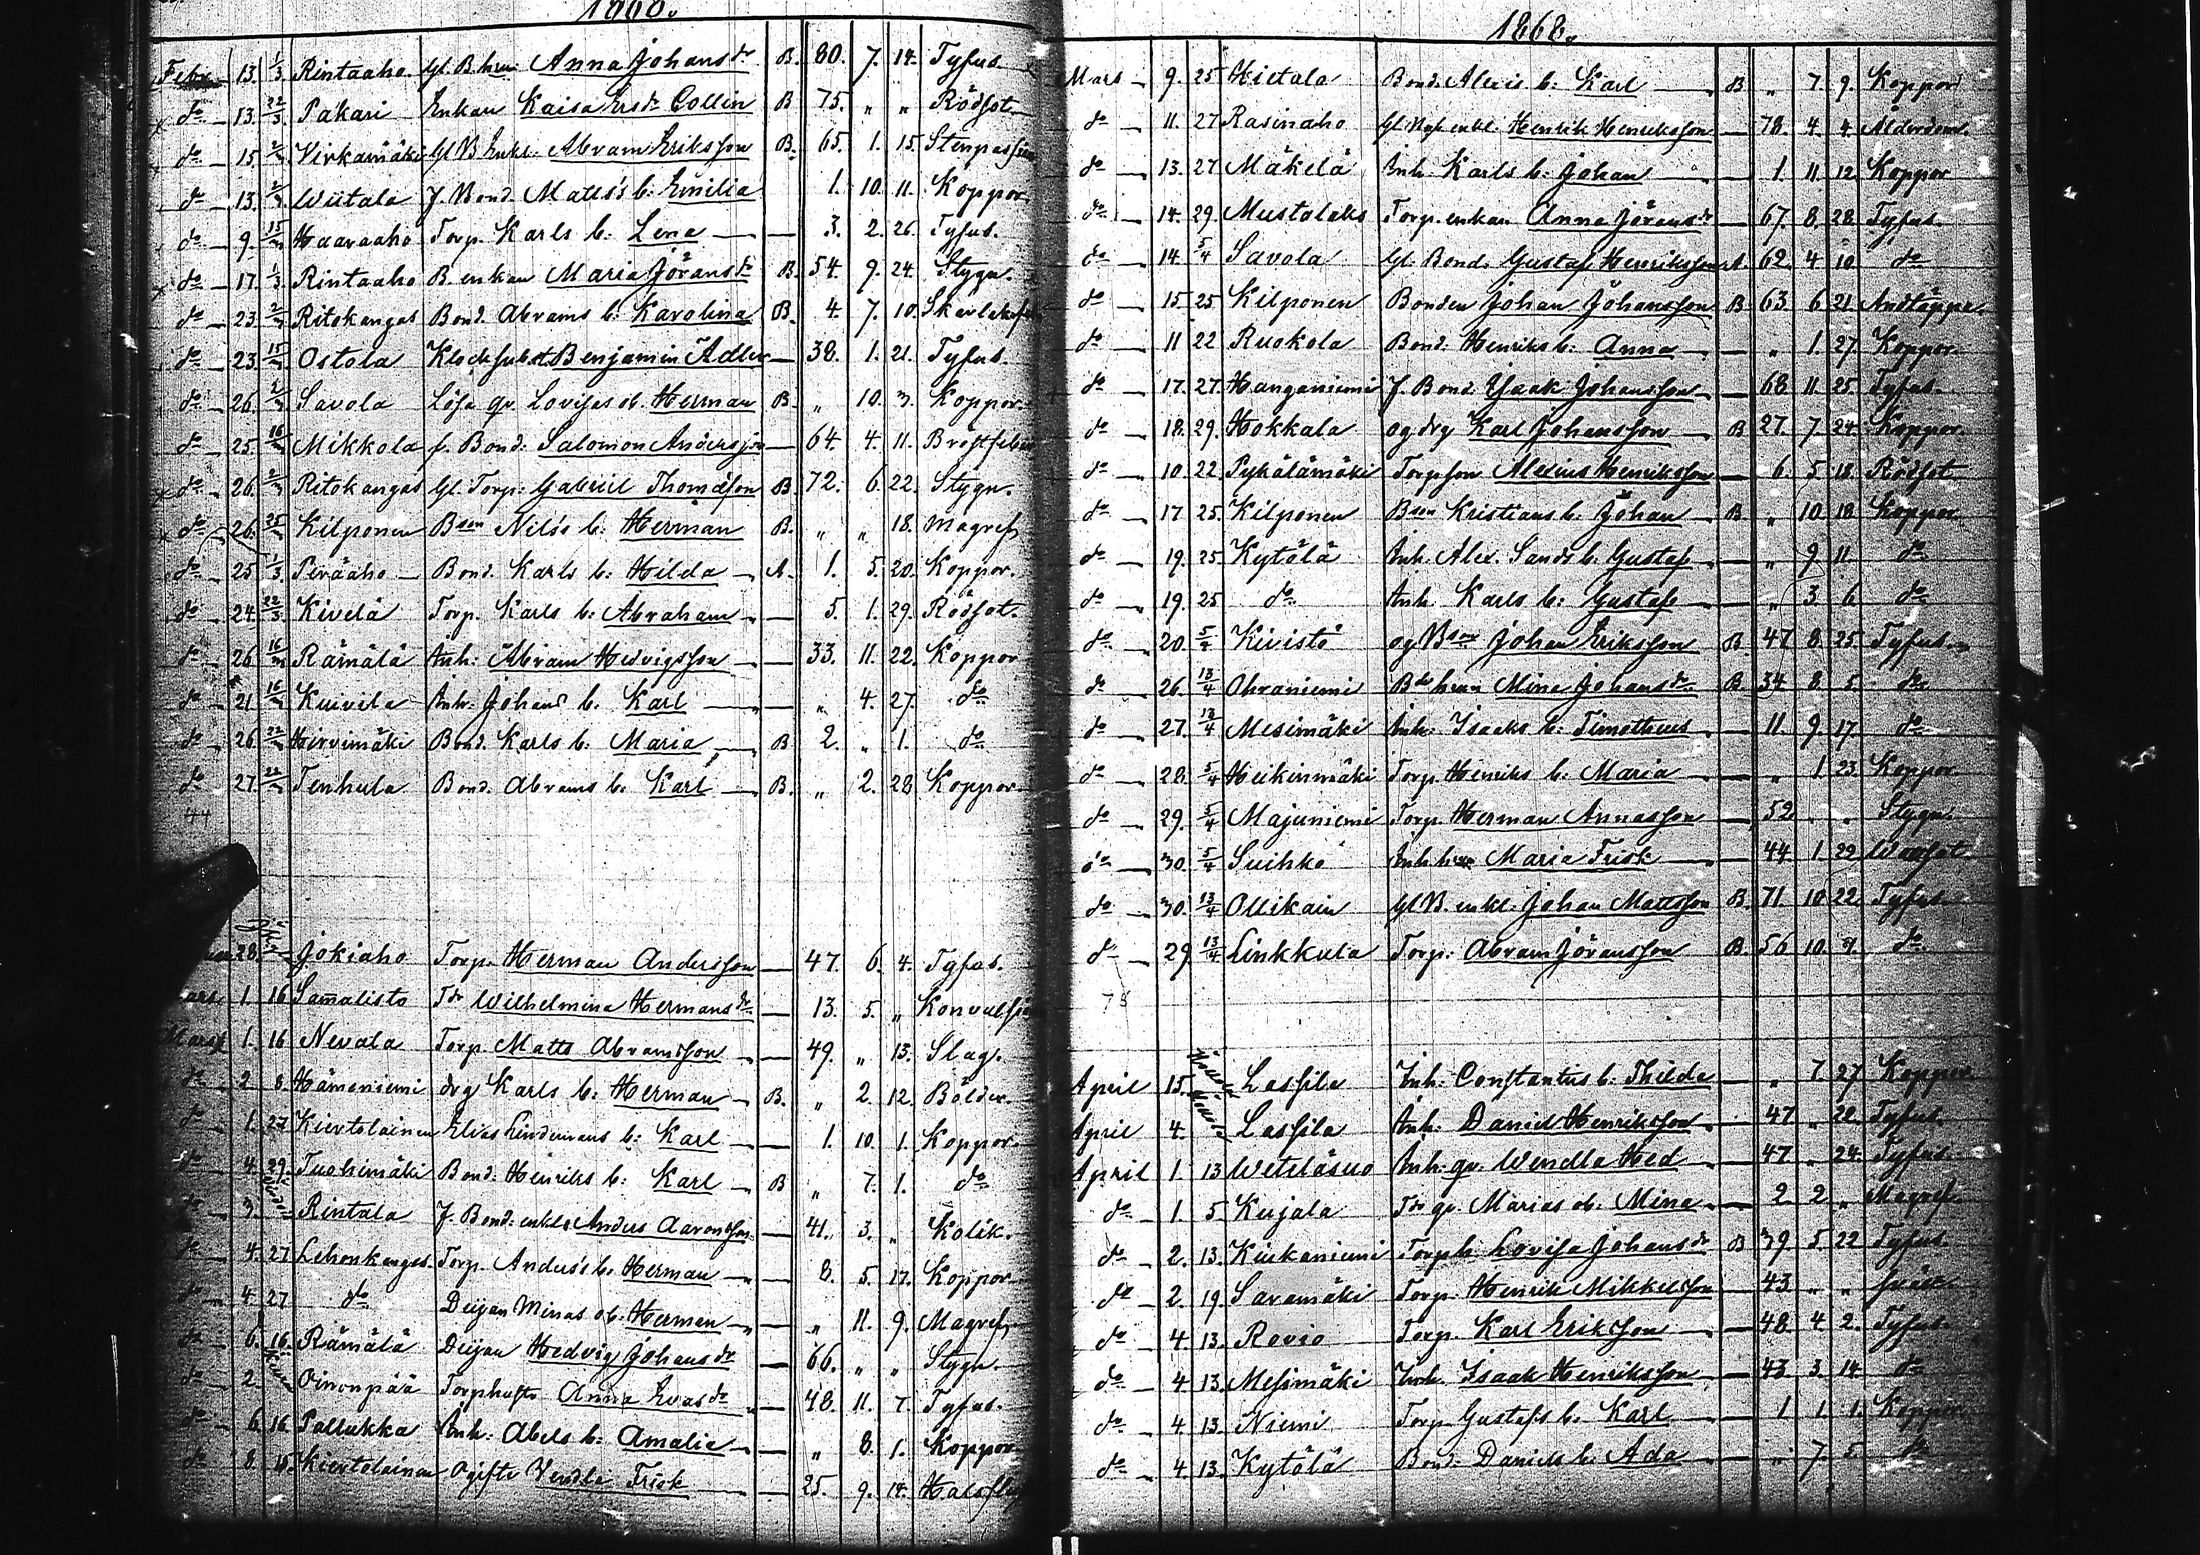 1868.
Febr. 13. 1/3 Rintaaho Gl. B. hru Anna Johansdr B. 80. 7. 14. Tyfus.
do 13. 22/3 Pakari Enkan Kaisa Ersdr Collin B 75. " " Rödsot
do 15 2/3 Virkamäki Gl B Enkl. Abram Eriksson B. 65. 1. 15. Stenpassion
do 13. 2/3 Wiitala f. Bond. Matts's b: Emilia 1. 10. 11. Koppor
do 9. 15/3 Haaraaho Torp. Karls b. Lena — 3. 2. 26. Tyfus.
do 17. 1/3 Rintaaho B. enkan Maria Jöransdr B. 54. 9. 24. Stygn.
do 23. 2/3 Ritokangas Bond. Abrams b: Karolina B. 4. 7. 10. Skarlaksf
do 23. 15/3 Ostola Klocksubst Benjamin Adler — 38. 1. 21. Tyfus.
do 26. 2/3 Savola Lösa qv. Lovisas ob. Herman B. " 10. 3. Koppor.
do 25. 16/3 Mikkola f. Bond. Salomon Andersson — 64. 4. 11. Bröstfeber
do 26. 2/3 Ritokangas Gl. Torp: Gabriel Thomasson B. 72. 6. 22. Stygn.
do 26. 25/3 Kilponen Bson Nils's b: Herman B. " " 18. Magref
do 25 1/3 Peräaho Bond. Karls b: Hilda A. 1. 5. 20. Koppor.
do 24. 22/3 Kivelä Torp. Karls b: Abraham — 5. 1. 29. Rödsot.
do 26 16/3 Rämälä Inh: Abram Hedvigsson — 33. 11. 22. Koppor
do 21 16/3 Kuivila Inh: Johans b. Karl — " 4. 27. do
do 26 22/3 Hirvimäki Bond. Karls b: Maria B 2. " 1. do
do 27. 22/3 Tenhula Bond. Abrams b: Karl B. " 2. 28 Koppor
44
28. Jokiaho Torp. Herman Andersson — 47. 6. 4. Tyfus.
Mars 1. 16 Samalisto Tdr Wilhelmina Hermansdr — 13. 5. " Konvulsion
Mars 1. 16 Nevala Torp. Matts Abramsson — 49. " 13. Slag.
do 2 8. Hämeniemi drg Karls b: Herman B. " 2. 12. Bölder.
do 1. 27 Kiertolainen Elias Lindemans b: Karl — 1. 10. 1. Koppor
do 4. 29. Tuohimäki Bond. Henriks b: Karl B " 7. 1. do
do 3. Rintala f. Bond: enkl: Anders Aaronsson — 41. 3. " Kolik.
do 4. 27 Lehonkangas Torp. Anders's b. Herman — 8. 5. 17. Koppor
do 4. 27 do Deijan Minas ob. Herman — " 11. 9. Magref
do 6. 16. Rämälä Deijan Hedvig Johansdr — 66. " " Stygn.
do 2. Oinonpää Torphustr Anna Evasdr — 48. 11. 7. Tyfus.
do 6. 16 Pallukka Inh. Abels b: Amalia — " 8. 1. Koppor
do 8. 15. Kiertolainen Ogifta Vendla Frisk — 25. 9. 14. Halsfl
1868.
Mars 9. 25 Hietala Bond. Alexis b: Karl B " 7. 9. Koppor
do 11. 27 Rasinaho Henrik Henriksson — 78. 4. 4. Ålderdom.
do 13. 27 Mäkelä Inh. Karls b: Johan — 1. 11. 12. Koppor
do 14. 29. Mustalaks Torp. enkan Anna Jöransdr — 67. 8. 28. Tyfus.
do 14. 5/4 Savola Gl. Bond. Gustaf Henriksson A. 62. 4 10 do
do 15. 25 Kilponen Bonden Johan Johansson B 63. 6 21. Andtäppa.
do 11 22 Ruokola Bond. Henriks b: Anna — " 1. 27. Koppor
do 17. 27. Hanganiemi f. Bond. Isaak Johansson — 68. 11. 25. Tyfus.
do 18. 29. Hokkala og drg Karl Johansson B 27. 7. 24. Koppor.
do 10. 22. Pyhälämäki Torpson Alexius Henriksson — 6. 5. 18. Rödsot
do 17 25. Kilponen Bson Kristians b: Johan B. " 10 18. Koppor
do 19. 25 Kytölä Inh. Alex. Sands b. Gustaf — " 9 11. do
do 19. 25 do Inh. Karls b: Gustaf — " 3. 6 do
do 20. 5/4 Kivistö og Bson Johan Eriksson B. 47. 8. 25. Tyfus.
do 26. 13/4 Ohraniemi Bdes hru Mina Johansdr B. 34. 8. 5. do
do 27. 13/4 Mesimäki Inh. Isaaks b: Timotheus — 11. 9. 17. do
do 28. 5/4 Heikinmäki Torp. Henriks b: Maria — " 1 23. Koppor
do 29. 5/4 Majuniemi Torp. Herman Annasson — 52 " " Stygn.
do 30. 5/4 Suihko Inh hru Maria Frisk — 44. 1. 29 Wattsot
do 30. 13/4 Ollikain Gl B. enkl: Johan Mattsson B. 71. 10 22. Tyfus.
do 29 13/4 Linkkula Torp. Abram Jöransson B. 56 10. 7. do
April 15. Lassila Inh: Constantus b: Thilda — " 7. 27. Koppor
April 4. Lassila Inh: Daniel Henriksson — 47 " 22. Tyfus.
April 1. 13 Weteläsuo Inh: qv. Wendla Hed — 47 " 24. Tyfus.
do 1. 5. Kujala Tdr qv. Marias ob. Mina — 2 2 " Magref.
do 2. 13. Kiekaniemi Lovisa Johansdr B 39. 5. 22 Tyfus.
do 2. 19. Saramäki Torp. Henrik Mikkelsson — 43 " "
do 4. 13. Rovio Torp. Karl Eriksson — 48. 4. 2. Tyfus.
do 4. 13. Mesimäki Inh. Isaak Henriksson — 43 3. 14. do
do 4. 13. Niemi Torp Gustafs b. Karl — 1 1. 1. Koppor
do 4. 13. Kytölä Bond. Daniels b. Ada — " 7. 5. do